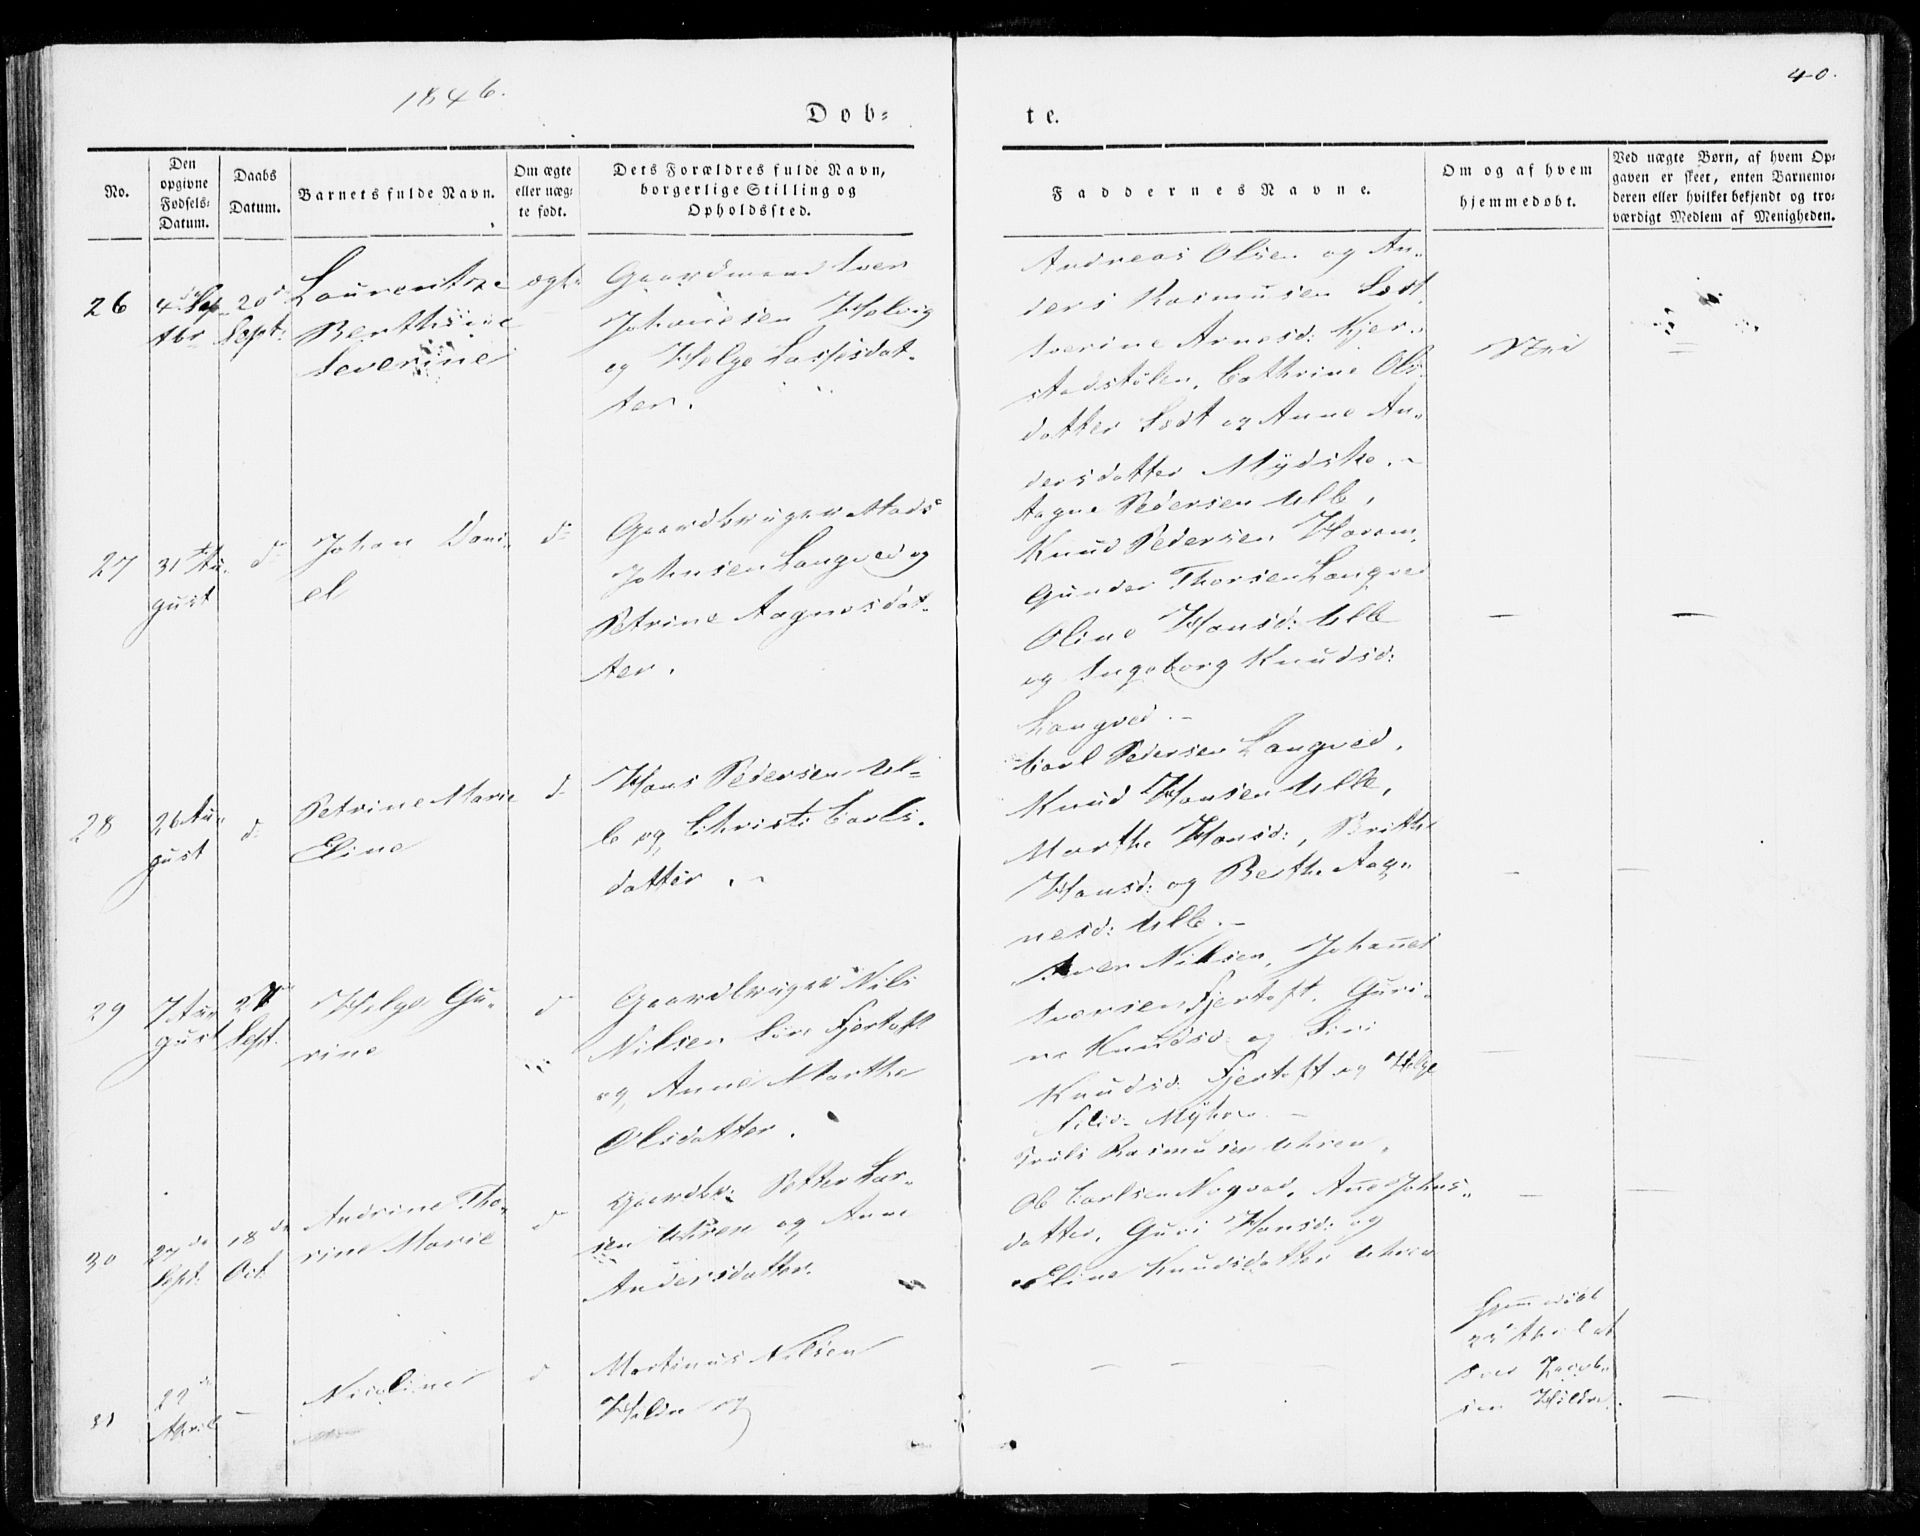 1846.
40.
Dob-
te.
No.
Den opgivne Fødsels-Datum.
Daabs Datum.
Barnets fulde Navn.
Om ægte eller uæg-te født.
Dets Forældres fulde Navn, borgerlige Stilling og Opholdssted.
Faddernes Navne.
Om og af hvem hjemmedøbt.
Ved uægte Børn, af hvem Op-gaven er skeet, enten Barnemo-deren eller hvilket bekjendt og tro-værdigt Medlem af Menigheden.
26
4de Sep-
tbr
20de
Sept:
Laurentze
Berthine
Severine
ægte
Gaardmand Iver
Johannesen Helvig
og Helge Lassesdat-
ter.
Andreas Olsen og An-
ders Rasmusen
Iverine Arnesd:
Cathrine Ols-
datter og Anne An-
dersdatter Mÿdske. -
27
31te Au-
gust
d-
Johan Dani-
el
d-
Gaardbruger Mads
Johnsen Langved og
Petrine Aagnesdat-
ter.
Aagne Pedersen Ulle,
Knud Pedersen Haram,
Gunder Thorsen Langved
Oline Hansd: Ulle
og Ingeborg Knudsd:
Langved. -
—
—
28
26 Au-
gust
d-
Petrine Marie
Eline
d-
Hans Pedersen Ul-
le og Christi Carls-
datter. -
Carl Pedersen Langved,
Knud Hansen Ulle,
Marthe Hansd:, Brithe
Hansd: og Berthe Aag-
nesd: Ulle. -
—
—
29
7 Au-
gust
27
Sept.
Helge Gu-
rine
d
Gaardbruger Nils
Nilsen Fjertoft
og Anne Marthe
Olsdatter.
Iver Nilsen, Johannes
Iversen Fjertoft, Guri-
ne Knudsd: og Siri
Knudsd: Fjertoft og Helge
Nilsd: Mÿhre. -
—
—
30
27de
Sept.
18de
Oct.
Andrine Tho-
rine Marie
d
Gaardbr: Petter Lar-
sen Uhren og Anne
Andersdatter.
Truls Rasmusen Uhren,
Ole Carlsen Anne Johns-
datter, Guri Hansd: og
Eline Knudsdatter Uhren
—
—
31
22de
April
—
Nicoline
d
Martinus Nilsen
og
— —
Hjemmedøbt
April af
Iver Jacob-
sen Hildre.
—